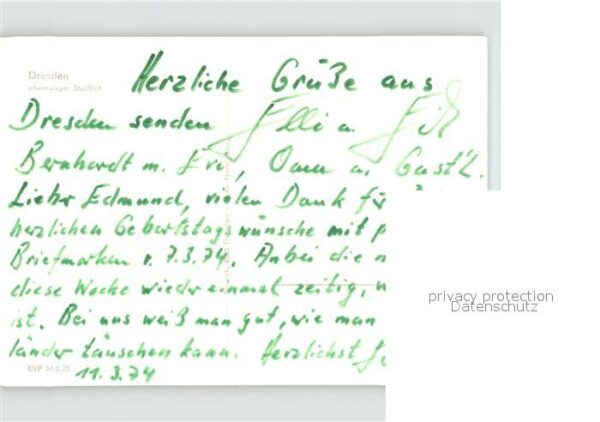 Dresden
ehemaliger Stallhof
Herzliche Grüße aus
Dresden senden Elli u.
Bernhardt m. Evi, Oma u.
Lieber Edmund, vielen Dank für
herzlichen Geburtstagswünsche mit
Briefmarken v. 7.3.74. Anbei die
diese Woche wieder einmal zeitig,
ist. Bei uns weiß man gut, wie man
länder täuschen kann. Herzlichst
11.3.74
EVP M 0,25
privacy protection
Datenschutz